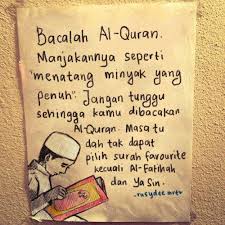 Bacalah Al-Quran.
Manjakannya seperti
"menatang minyak yang
penuh". Jangan tunggu
sehingga kamu dibacakan
Al-Quran. Masa tu
dah tak dapat
pilih surah favourite
kecuali Al-Fatihah
dan Ya Sin.